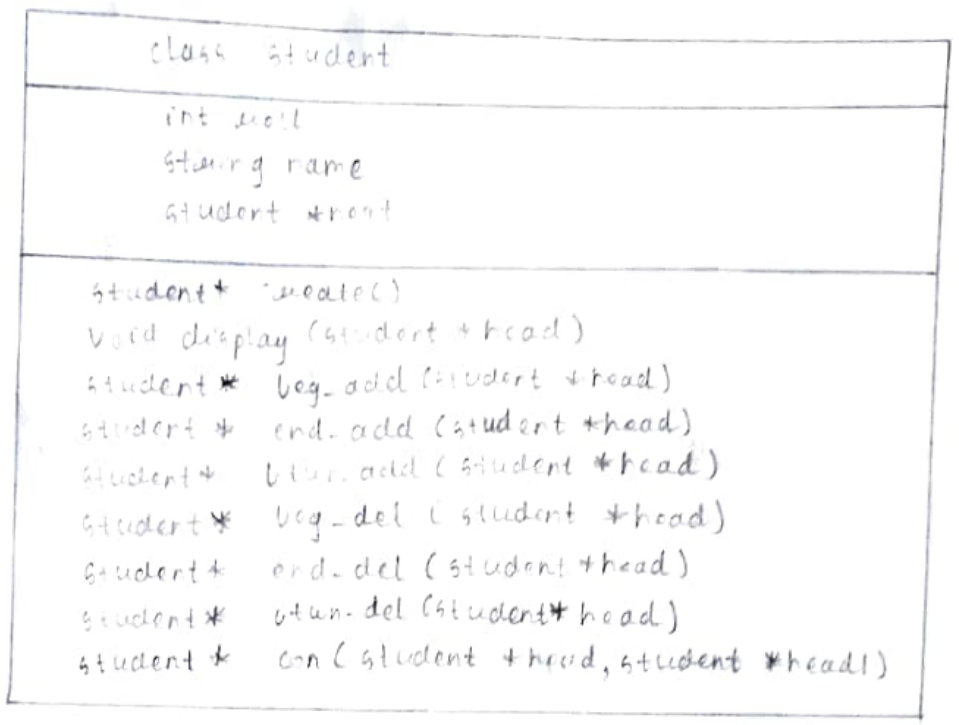 class student
int roll
string name
student *next
student* create()
void display (student *head)
student* beg_add (student *head)
student* end_add (student *head)
student* btw_add (student *head)
student* beg_del (student *head)
student* end_del (student *head)
student* btwn_del (student* head)
student* con (student *head, student *head1)